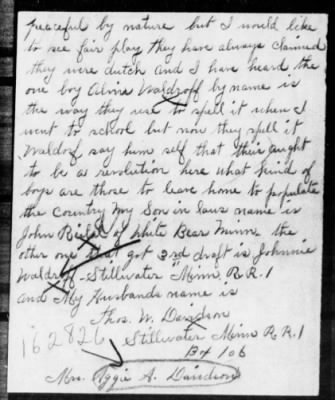 peaceful by nature but I would like
to see fair play they have always claimed
they were dutch and I have heard the
one boy Alvie Waldroff by name is
the way they use to spell it when I
went to school but now they spell it
Waldorf say him self that their aught
to be a revolution here what kind of
boys are those to leave home to populate
the Country My Son in laws name is
John of White Bear Minn. the
other one that got 3rd draft is Johnnie
Waldroff - Stillwater Minn R.R.1
and My Husbands name is
Thos. W. Davidson
162826
Stillwater Minn R.R.1
Bx 106
Mrs. Aggie A. Davidson